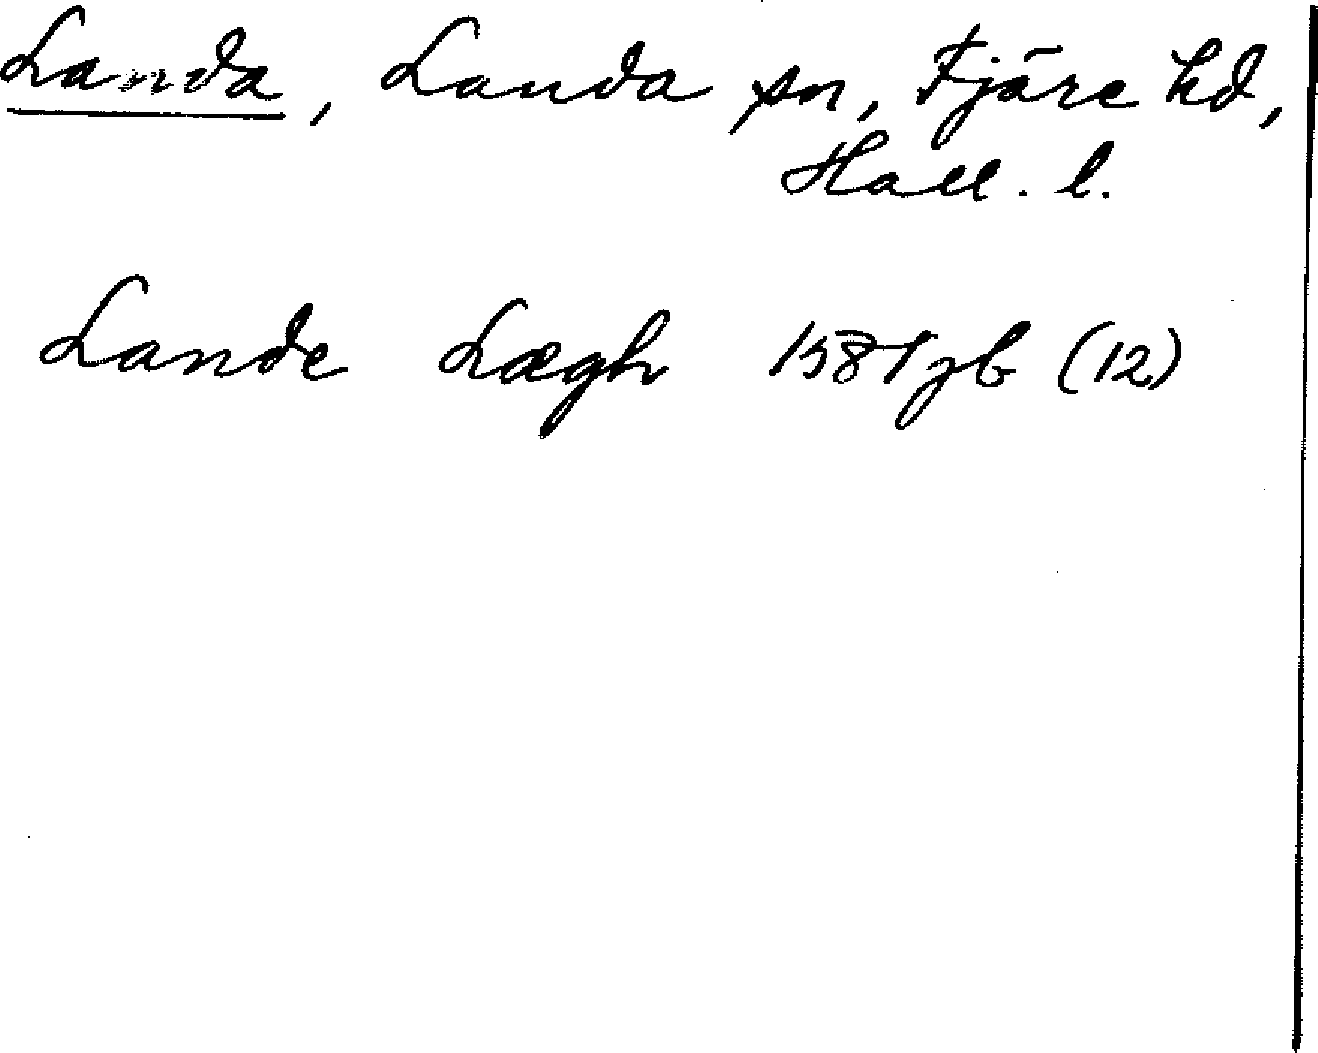 Landa, Landa sn, Fjäre hd,
Hall. l.
Lande Lægh 1581 jb (12)